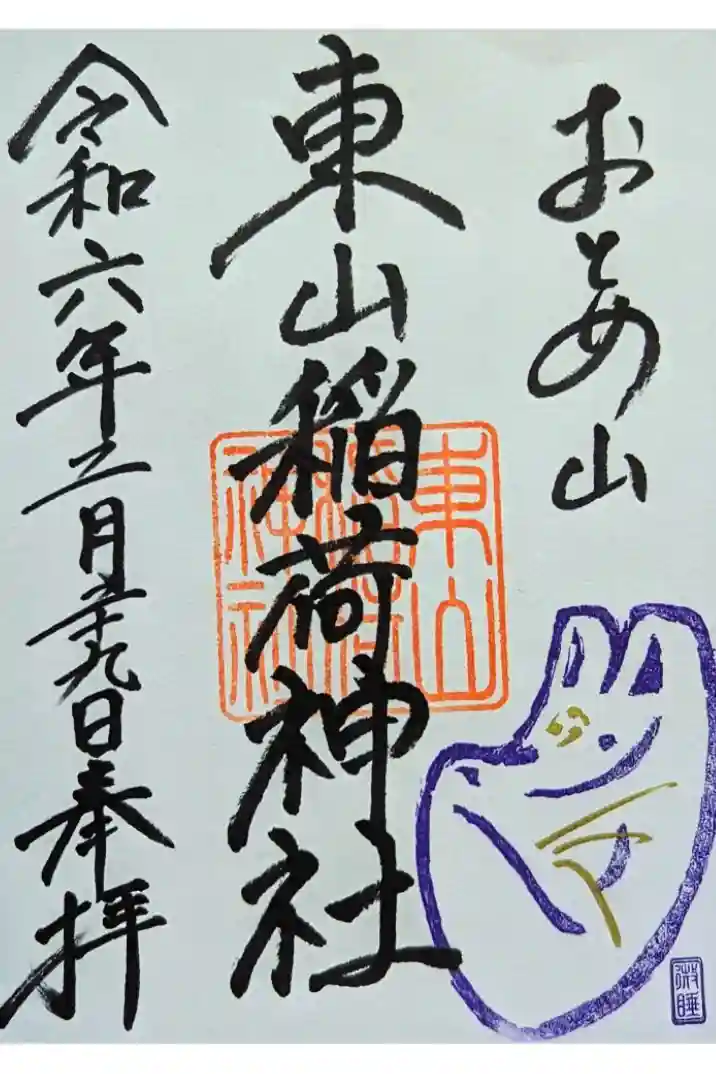 おとめ山
東山稲荷神社
令和六年二月二十九日奉拝
東山
稲荷
神社
微睡